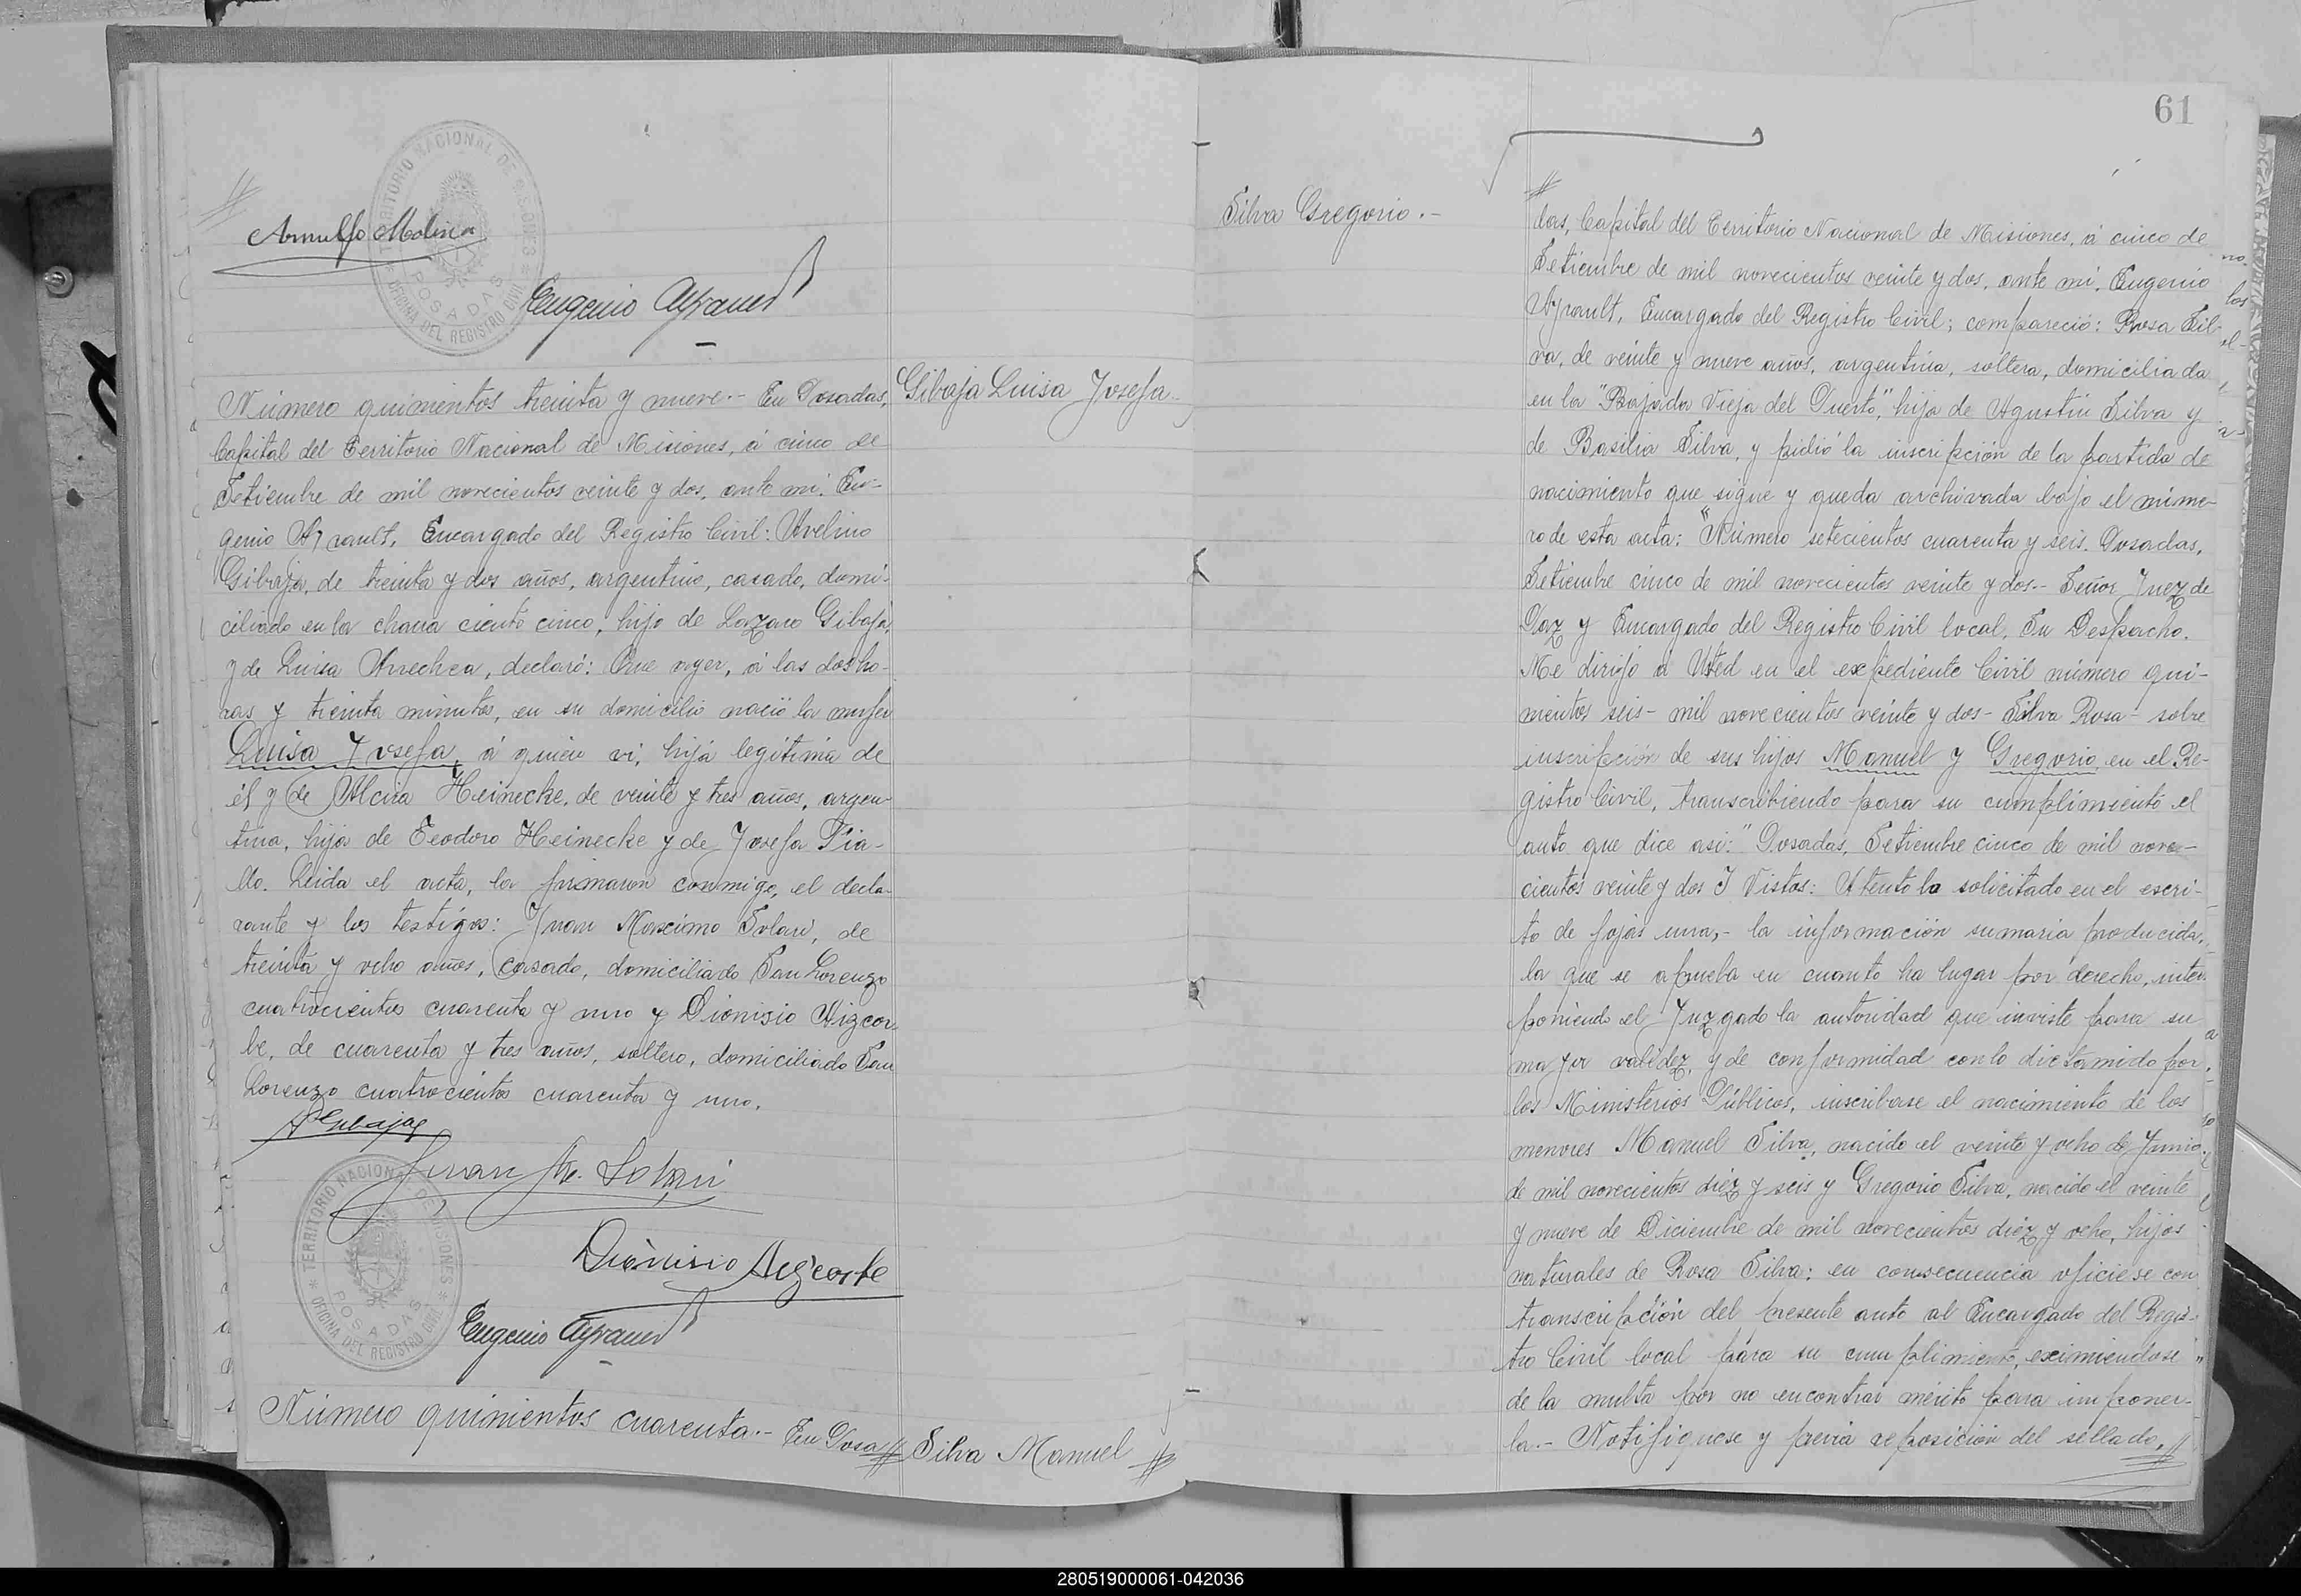 Arnulfo Molina
TERRITORIO NACIONAL DE MISIONES
POSADAS
OFICINA DEL REGISTRO CIVIL
Eugenio Ayrault
Número quinientos treinta y nueve.- En Posadas,
Capital del Territorio Nacional de Misiones, á cinco de
Setiembre de mil novecientos veinte y dos, ante mí, Eu-
genio Ayrault, Encargado del Registro Civil: Avelino
Gibaja, de treinta y dos años, argentino, casado, domi-
ciliado en la chacra ciento cinco, hijo de Lazaro Gibaja,
y de Luisa Arrechea, declaró: Que ayer, á las dos ho-
ras y treinta minutos, en su domicilio nació la mujer
Luisa Josefa, á quien vi, hija legítima de
él y de Alcira Heinecke, de veinte y tres años, argen-
tina, hija de Teodoro Heinecke y de Josefa
Leida el acta, la firmaron conmigo, el decla-
rante y los testigos: Juan Máscimo Solari, de
treinta y ocho años, casado, domiciliado San Lorenzo
cuatrocientos cuarenta y uno y Dionisio Aizcor
be, de cuarenta y tres años, soltero, domiciliado San
Lorenzo cuatrocientos cuarenta y uno.
A Gibaja
Juan M. Solari
TERRITORIO NACIONAL DE MISIONES
POSADAS
OFICINA DEL REGISTRO CIVIL
Dionisio Aizcorbe
Eugenio Ayrault
Número quinientos cuarenta.- En Posa//
Gibaja Luisa Josefa
Silva Manuel //
61
Silva Gregorio.-
// das, Capital del Territorio Nacional de Misiones, á cinco de
Setiembre de mil novecientos veinte y dos, ante mí, Eugenio
Ayrault, Encargado del Registro Civil; compareció: Rosa Sil-
va, de veinte y nueve años, argentina, soltera, domiciliada
en la "Bajada Vieja del Puerto," hija de Agustín Silva y
de Basilia Silva, y pidió la inscripción de la partida de
nacimiento que sigue y queda archivada bajo el núme-
ro de esta acta: "Número setecientos cuarenta y seis. Posadas,
Setiembre cinco de mil novecientos veinte y dos.- Señor Juez de
Paz y Encargado del Registro Civil local, Su Despacho.
Me dirijo á Usted en el expediente Civil número qui-
nientos seis- mil novecientos veinte y dos- Silva Rosa- sobre
inscripción de sus hijos Manuel y Gregorio, en el Re-
gistro Civil, transcribiendo para su cumplimiento el
auto que dice así: "Posadas, Setiembre cinco de mil nove-
cientos veinte y dos Y Vistos: Atento lo solicitado en el escri-
to de fojas una,- la información sumaria producida,
la que se aprueba en cuanto ha lugar por derecho, inter
poniendo el Juzgado la autoridad que inviste para su
mayor validez, y de conformidad con lo dictaminado por
los Ministerios Públicos, inscribase el nacimiento de los
menores Manuel Silva, nacido el veinte y ocho de Junio
de mil novecientos diéz y seis y Gregorio Silva, nacido el veinte
y nueve de Diciembre de mil novecientos diéz y ocho, hijos
naturales de Rosa Silva; en consecuencia ofíciese con
transcripción del presente auto al Encargado del Regis-
tro Civil local para su cumplimiento, eximiendose
de la multa por no encontrar mérito para imponer-
la.- Notifiquese y previa reposición del sellado, //
280519000061-042036